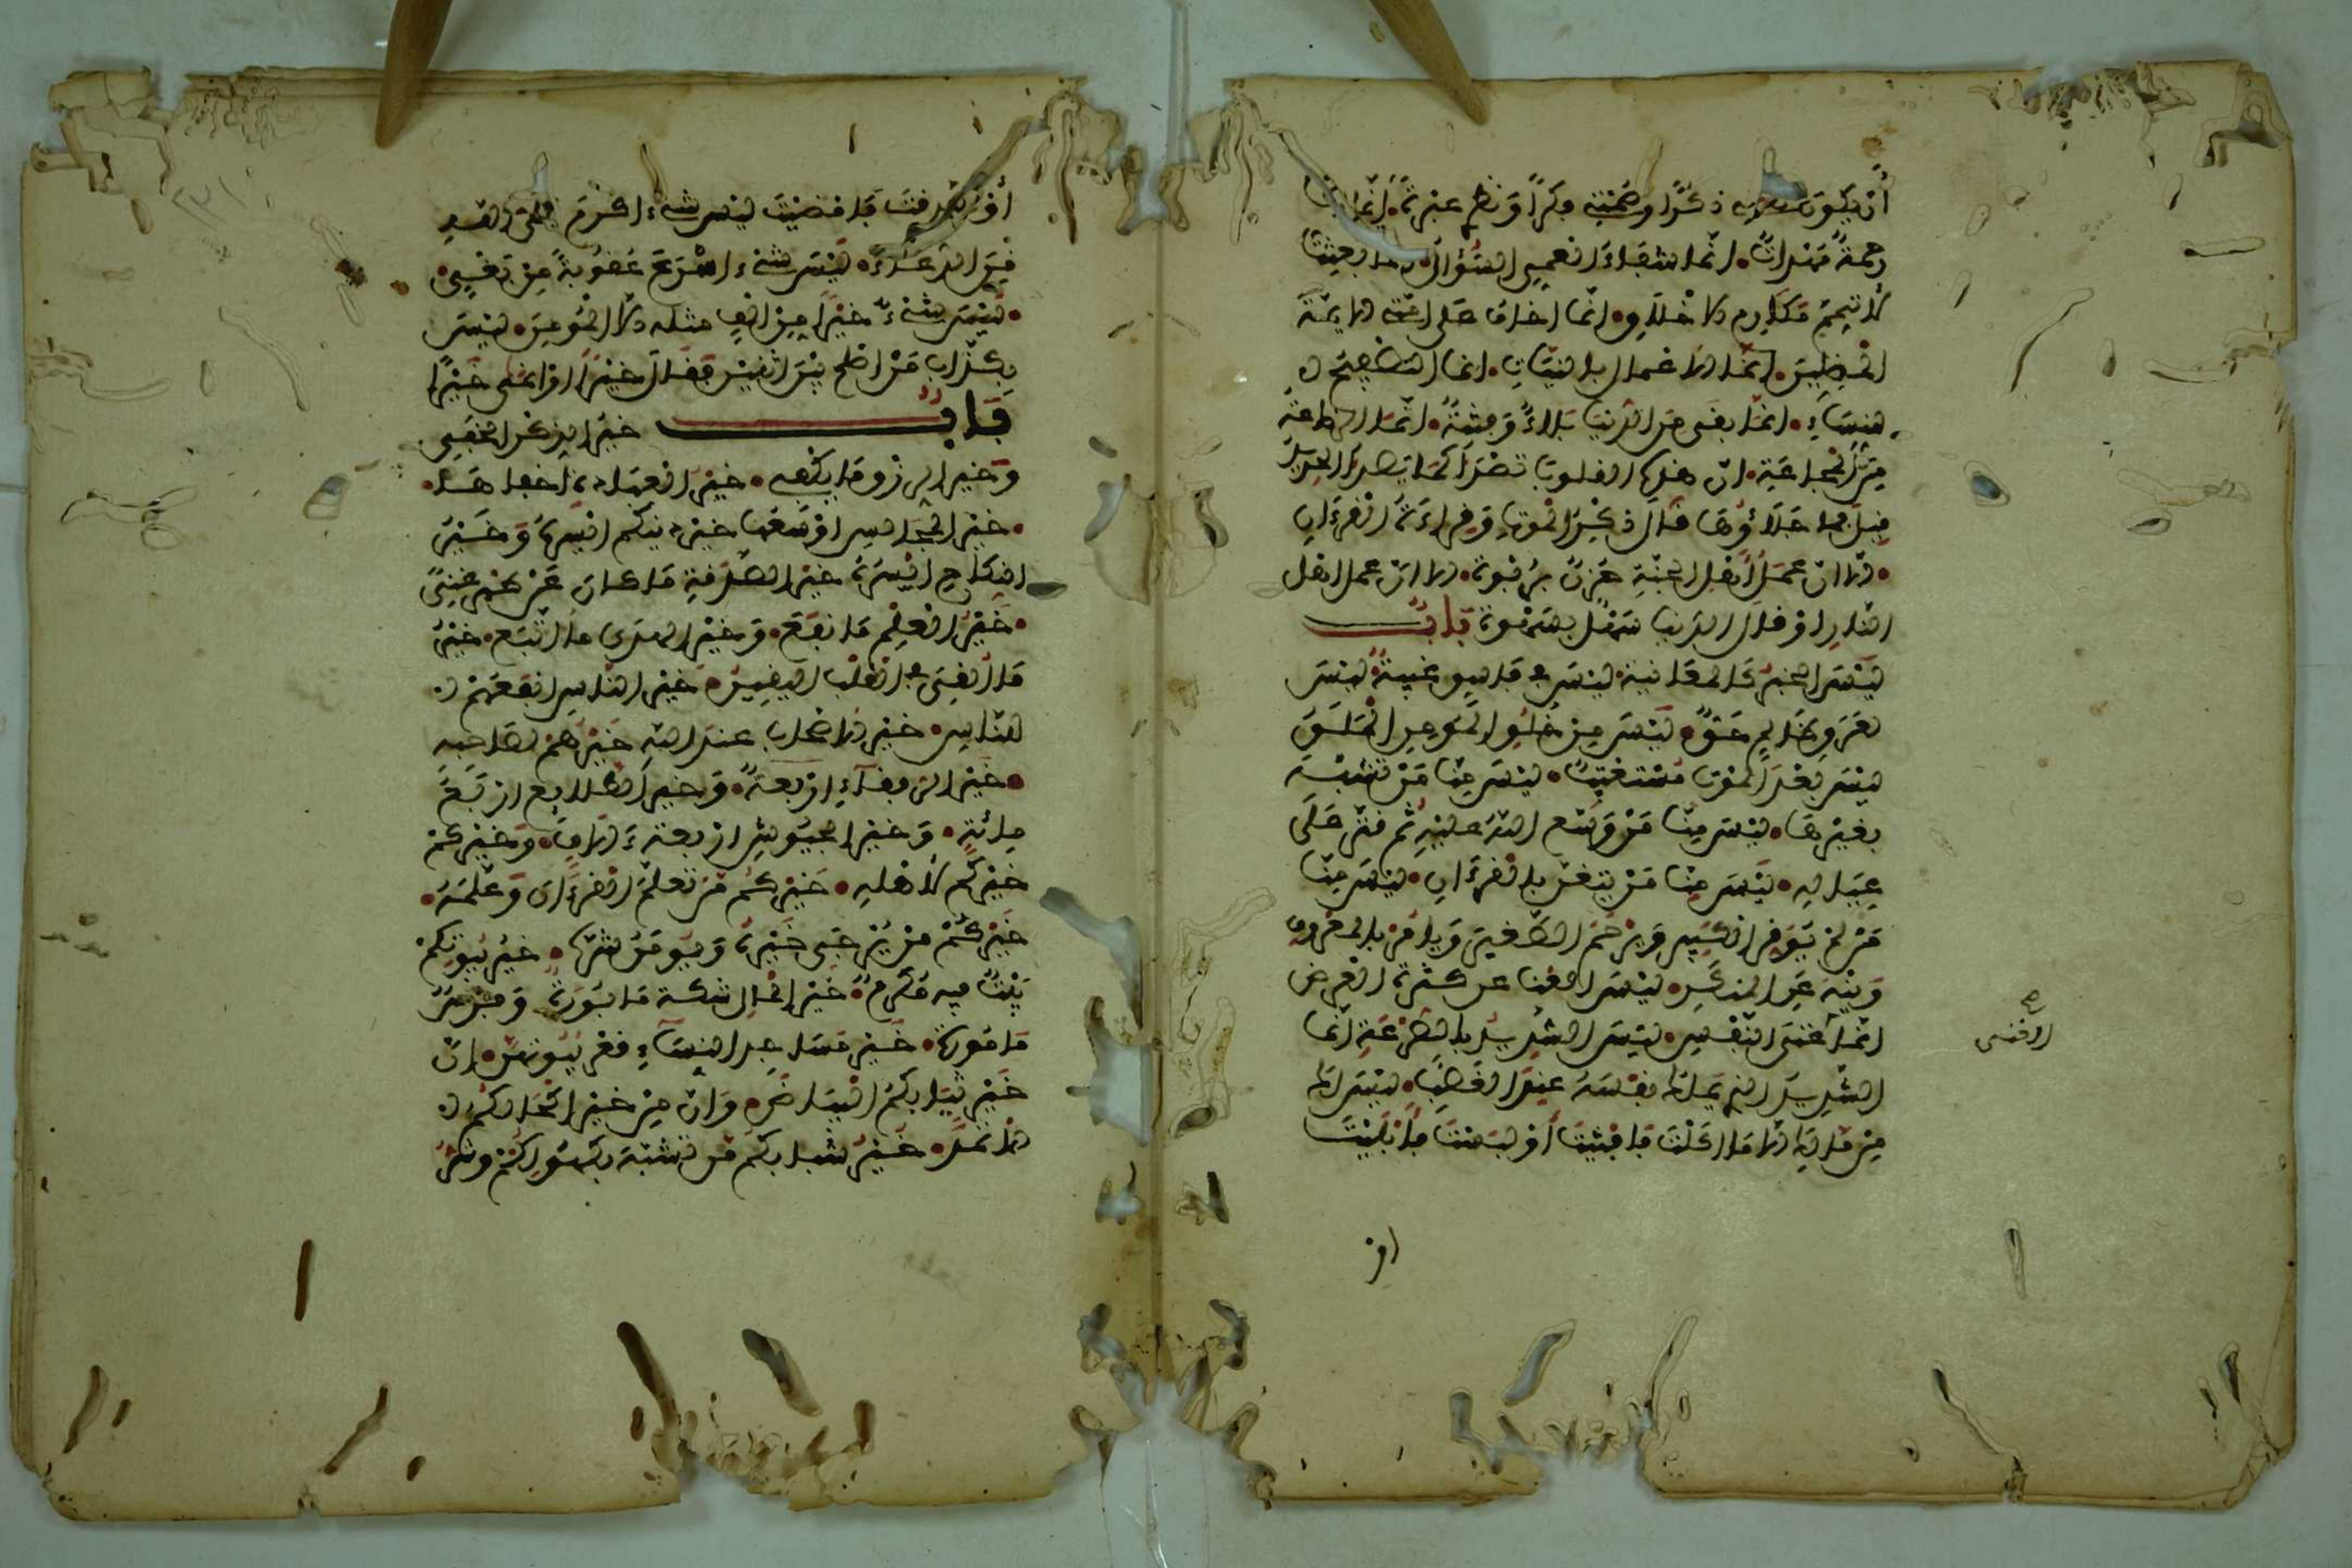 أن يكون نطقي ذكرا وصمتي فكرا ونظري عبرة. إنما انا
رحمة مهداة. انما شفاء العي السؤال. انما بعثت
لأتمم مكارم الاخلاق. انما اخاف على امتي الايمة
المضلين. إنما الاعمال بالنيات. انما التصفيح لـ
لنساء. انما بقي من الدنيا بلاء وفتنة. انما الرضاعة
من المجاعة. ان هذه القلوب تصدأ كما يصدأ الحديد
قيل فما جلاؤها قال ذكر الموت وقراءة القرءان
. الا ان عمل أهل الجنة حزن بربوة. الا ان عمل اهل
النار او قال الدنيا سهل بسهوة باب
ليس الخبر كالمعاينة. ليس لفاسق غيبة. ليس
لعرق ظالم حق. ليس من خلق المومن الملق
ليس بعد الموت مستعتب. ليس منا من تشبه
بغيرنا. ليس منا من وسع الله عليه ثم قتر على
عياله. ليس منا من يتغن بالقرءان. ليس منا
من لم يوقر الكبير ويرحم الصغير ويامر بالمعروف
وينه عن المنكر. ليس الغنا عن كثرة العرض
انما غنى النفس. ليس الشديد بالصرعة إنما
الغنى
الشديد الذي يملك نفسه عند الغضب. ليس لك
من مالك الا ما اكلت فافنيت أو لبست فأبليت
او
أو تصدقت فامضيت ليس شيء اكرم على الله
من الدعاء. ليس شيء اسرع عقوبة من بغي.
. ليس شيء خيرا من الف مثله الا المومن. ليس
بكذاب من اصلح بين اثنين فقال خيرا او انمى خيرا
باب خير الذكر الخفي
وخير الرزق ما يكفي. خير العبادة اخفاها.
. خير المجالس اوسعها خير دينكم ايسره وخير
النكاح ايسره خير الصدقة ما كان عن ظهر غنى
. خير العلم ما نفع. وخير الهدى ما اتبع. خير
ما القي في القلب اليقين. خير الناس انفعهم لـ
لناس. خير الاصحاب عند الله خيرهم لصاحبه
. خير الرفقاء اربعة. وخير الطلايع اربع
مائة. وخير الجيوش اربعة ءالاف. وخيركم
خيركم لأهله. خيركم من تعلم القرءان وعلمه.
خيركم من يرجى خيره ويومن شره. خير بيوتكم
بيت فيه مكرم. خير المال سكة مابورة وفرس
مامورة. خير مساجد النساء قعر بيوتهن. إن
خير ثيابكم البياض. وان من خير اكحالكم لـ
لاثمد. خير شبابكم من تشبه بكهولكم وشر